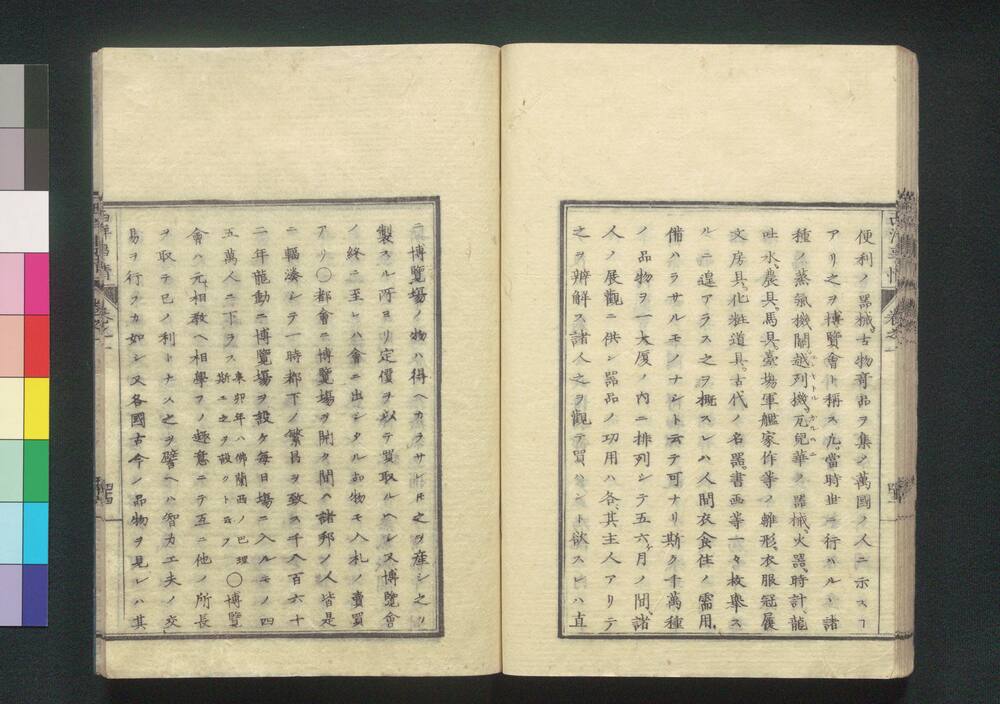 便利ノ器械、古物竒品ヲ集メ萬國ノ人ニ示スヿ
アリ之ヲ博覽會ト稱ス凢當時世ニ行ハルヽ諸
種ノ蒸氣機關越列機、瓦兒華ノ器械、火器、時計、龍
吐水、農具、馬具、臺塲軍艦家作等ノ雛形、衣服冠履
文房具、化粧道具、古代ノ名器、書画等一々枚擧ス
ルニ遑アラス之ヲ概スレハ人間衣食住ノ需用、
備ハラサルモノナシト云テ可ナリ斯ク千萬種
ノ品物ヲ一大厦ノ内ニ排列シテ五六ケ月ノ間、諸
人ノ展觀ニ供シ器品ノ功用ハ各、其主人アリテ
之ヲ辨解ス諸人之ヲ觀テ買ハント欲スレハ直
ニ博覽塲ノ物ハ得ヘカラサレ𪜈之ヲ産シ之ヲ
製スル所ヨリ定價ヲ以テ買取ルヘシ又博覽會
ノ終ニ至レハ會ニ出シタル品物モ入札ノ賣買
アリ〇都會ニ博覽塲ヲ開ク間ハ諸邦ノ人皆是
ニ輻湊シテ一時都下ノ繁昌ヲ致ス千八百六十
二年龍動ニ博覽塲ヲ設ケ毎日塲ニ入ルモノ四
五萬人ニ下ラス 來卯年ハ佛蘭西ノ巴理斯ニ之ヲ設クト云フ 〇博覽
會ハ元、相敎ヘ相學フノ趣意ニテ互ニ他ノ所長
ヲ取テ已ノ利トナス之ヲ譬ヘハ智力工夫ノ交
易ヲ行フカ如シ又各國古今ノ品物ヲ見レハ其